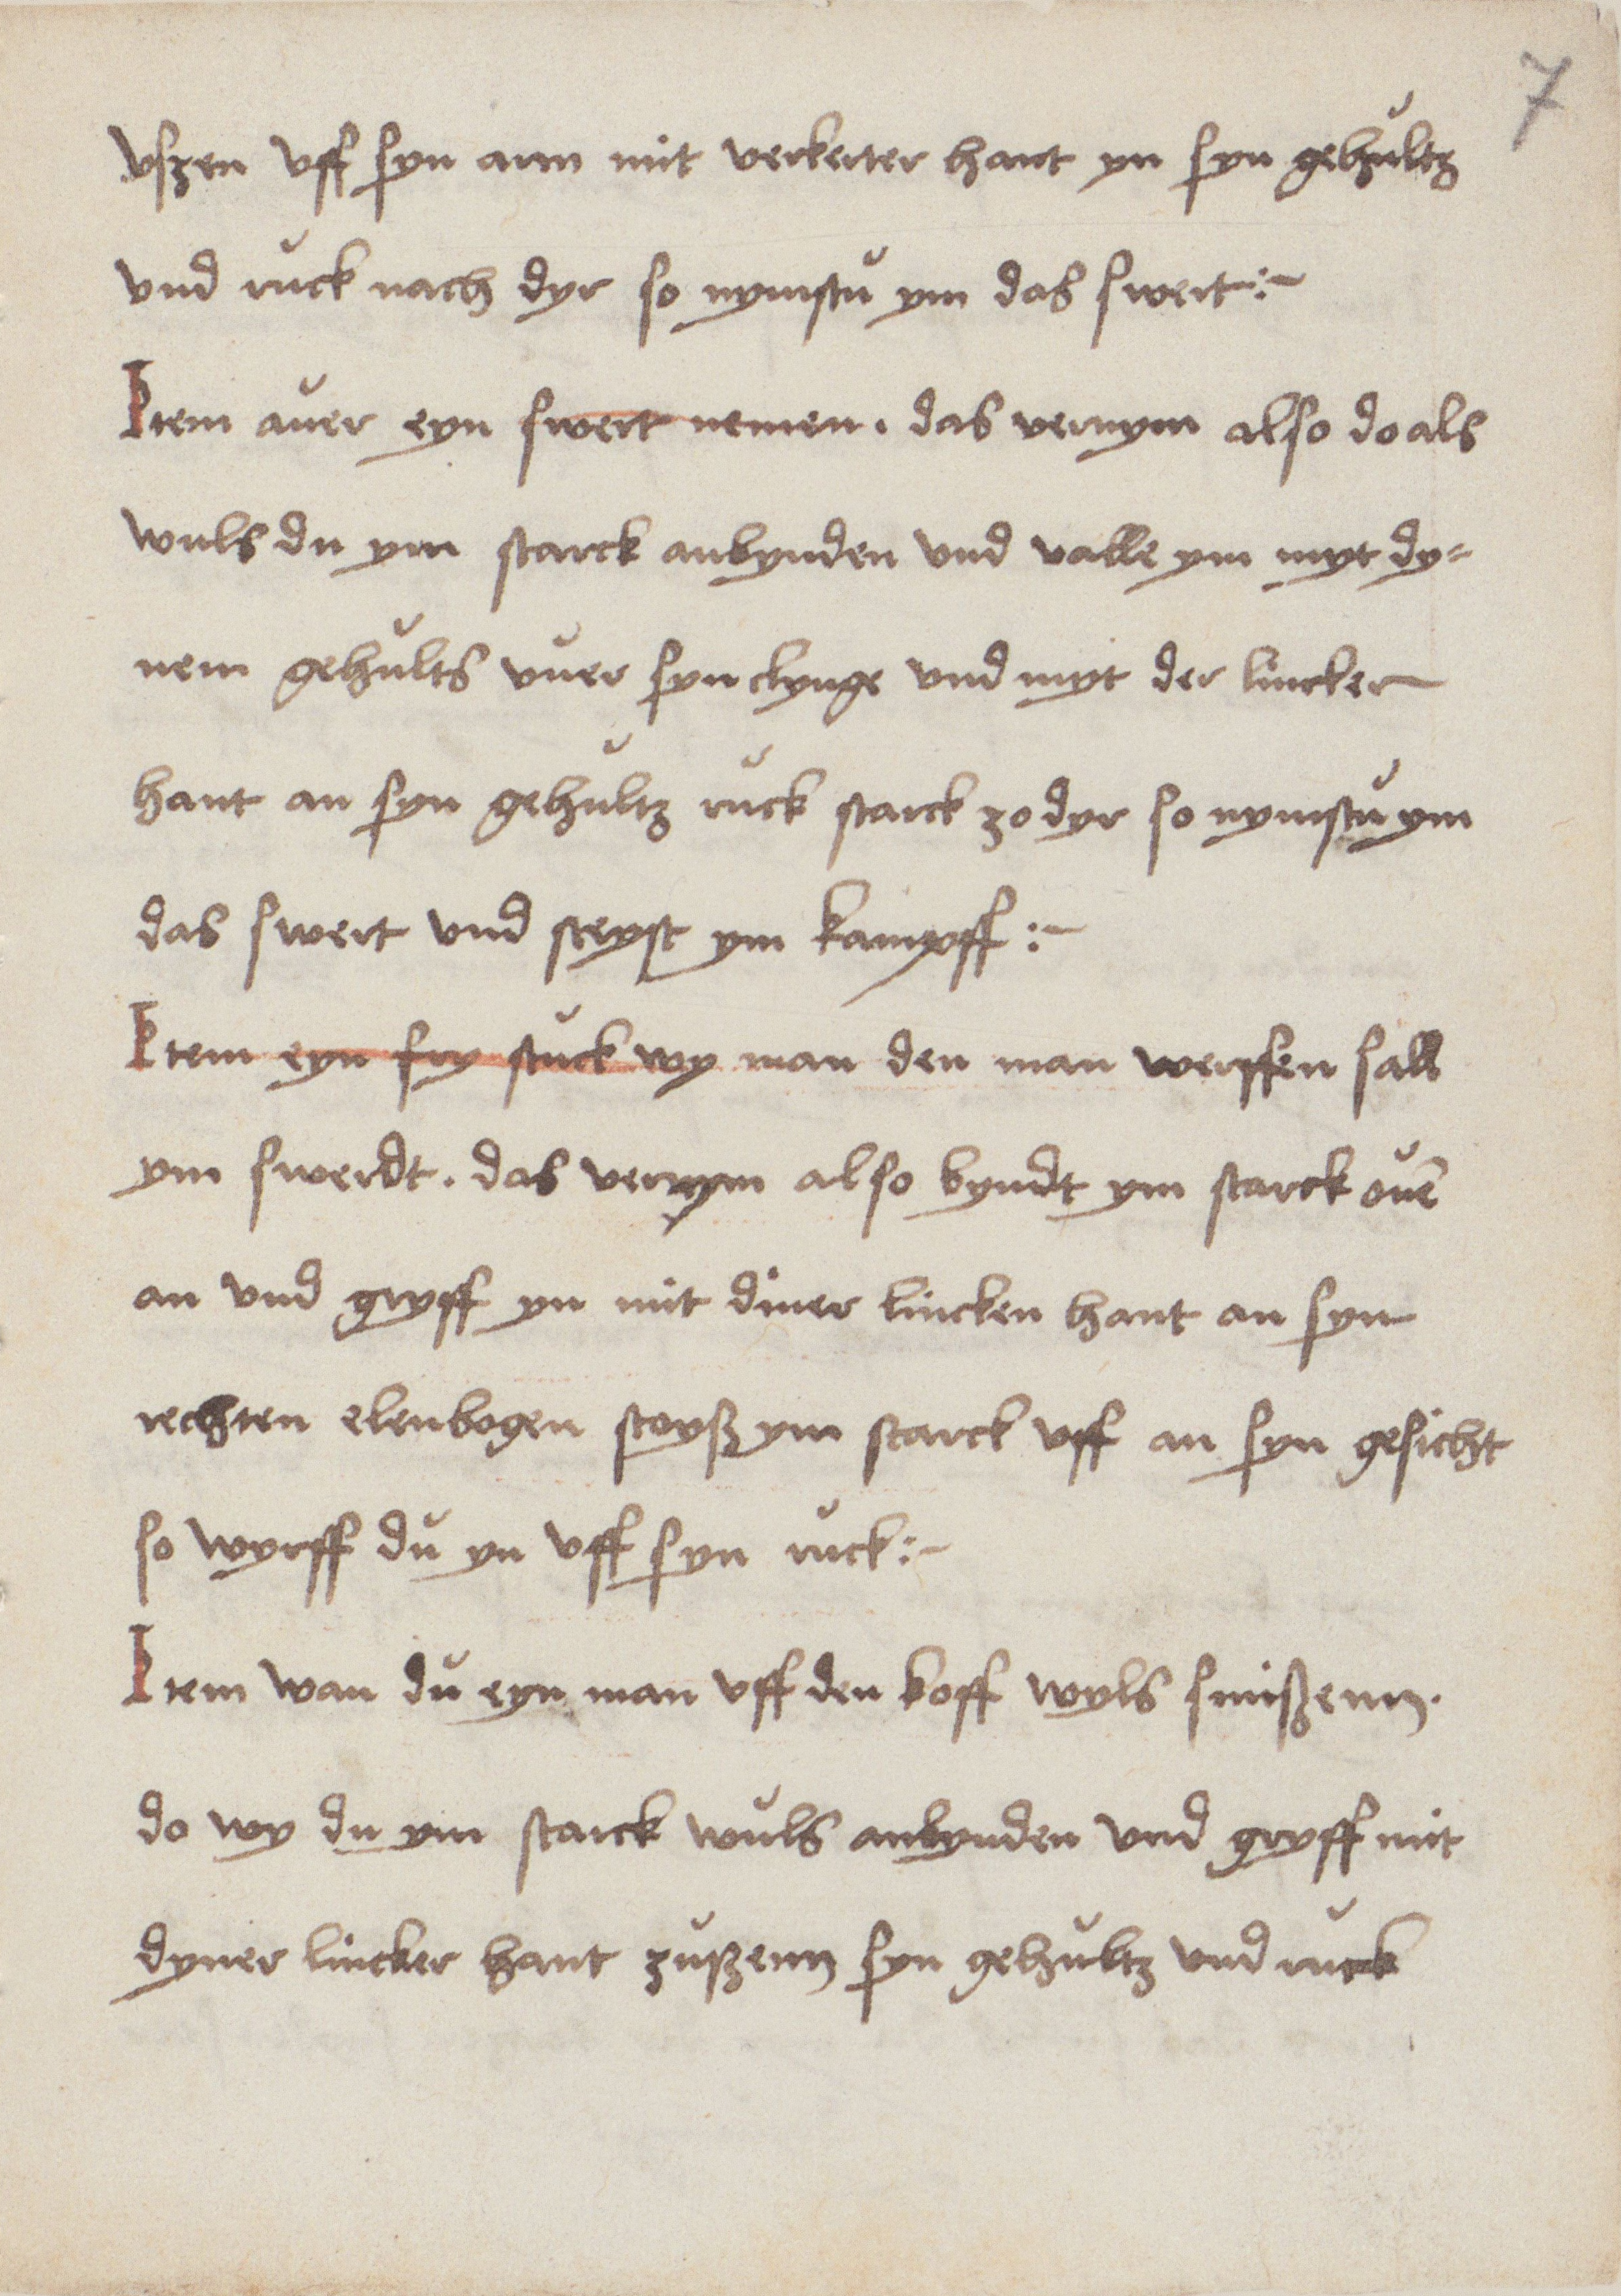 7
vszen vff syn arm mit verkerter hant yn syn gehultz
vnd ruck nach dyr so nymstu ym das swert :~
Item auer eyn swert nemen . das vernym also do als
wuls du ym starck anbynden vnd valle ym myt dy=
nem gehults vuer syn clynge vnd myt der lincker
hant an syn gehultz ruck starck zo dyr so nymstu ym
das swert vnd steyst ym kampff :~
Item eyn fry stuck wy man den man werffen sall
ym swerdt . das vernym also byndt ym starck ouē
an vnd gryff yn mit diner lincken hant an syn
rechten elenbogen stoyß ym starck vff an syn gesicht
so wyrff du yn vff syn ruck :~
Item wan du eyn man vff den koff wyls smißenn .
do wy du ym starck wuls anbynden vnd gryff mit
dyner lincker hant zußenn syn gehultz vnd ruck